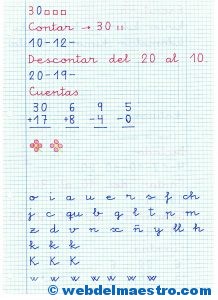 30□□□
Contar → 30 ıı
10-12-
Descontar del 20 al 10.
20-19-
Cuentas
30 6 9 5
+17 +8 -4 -0
o i a u e r s f ch
j c qu b g l t p m
z d v n x ñ y ll h
k k k
K K K
w w w w w w
© webdelmaestro.com